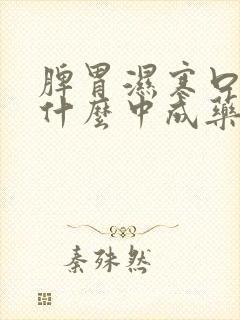 脾胃濕寒口
什麼中成藥
秦殊然